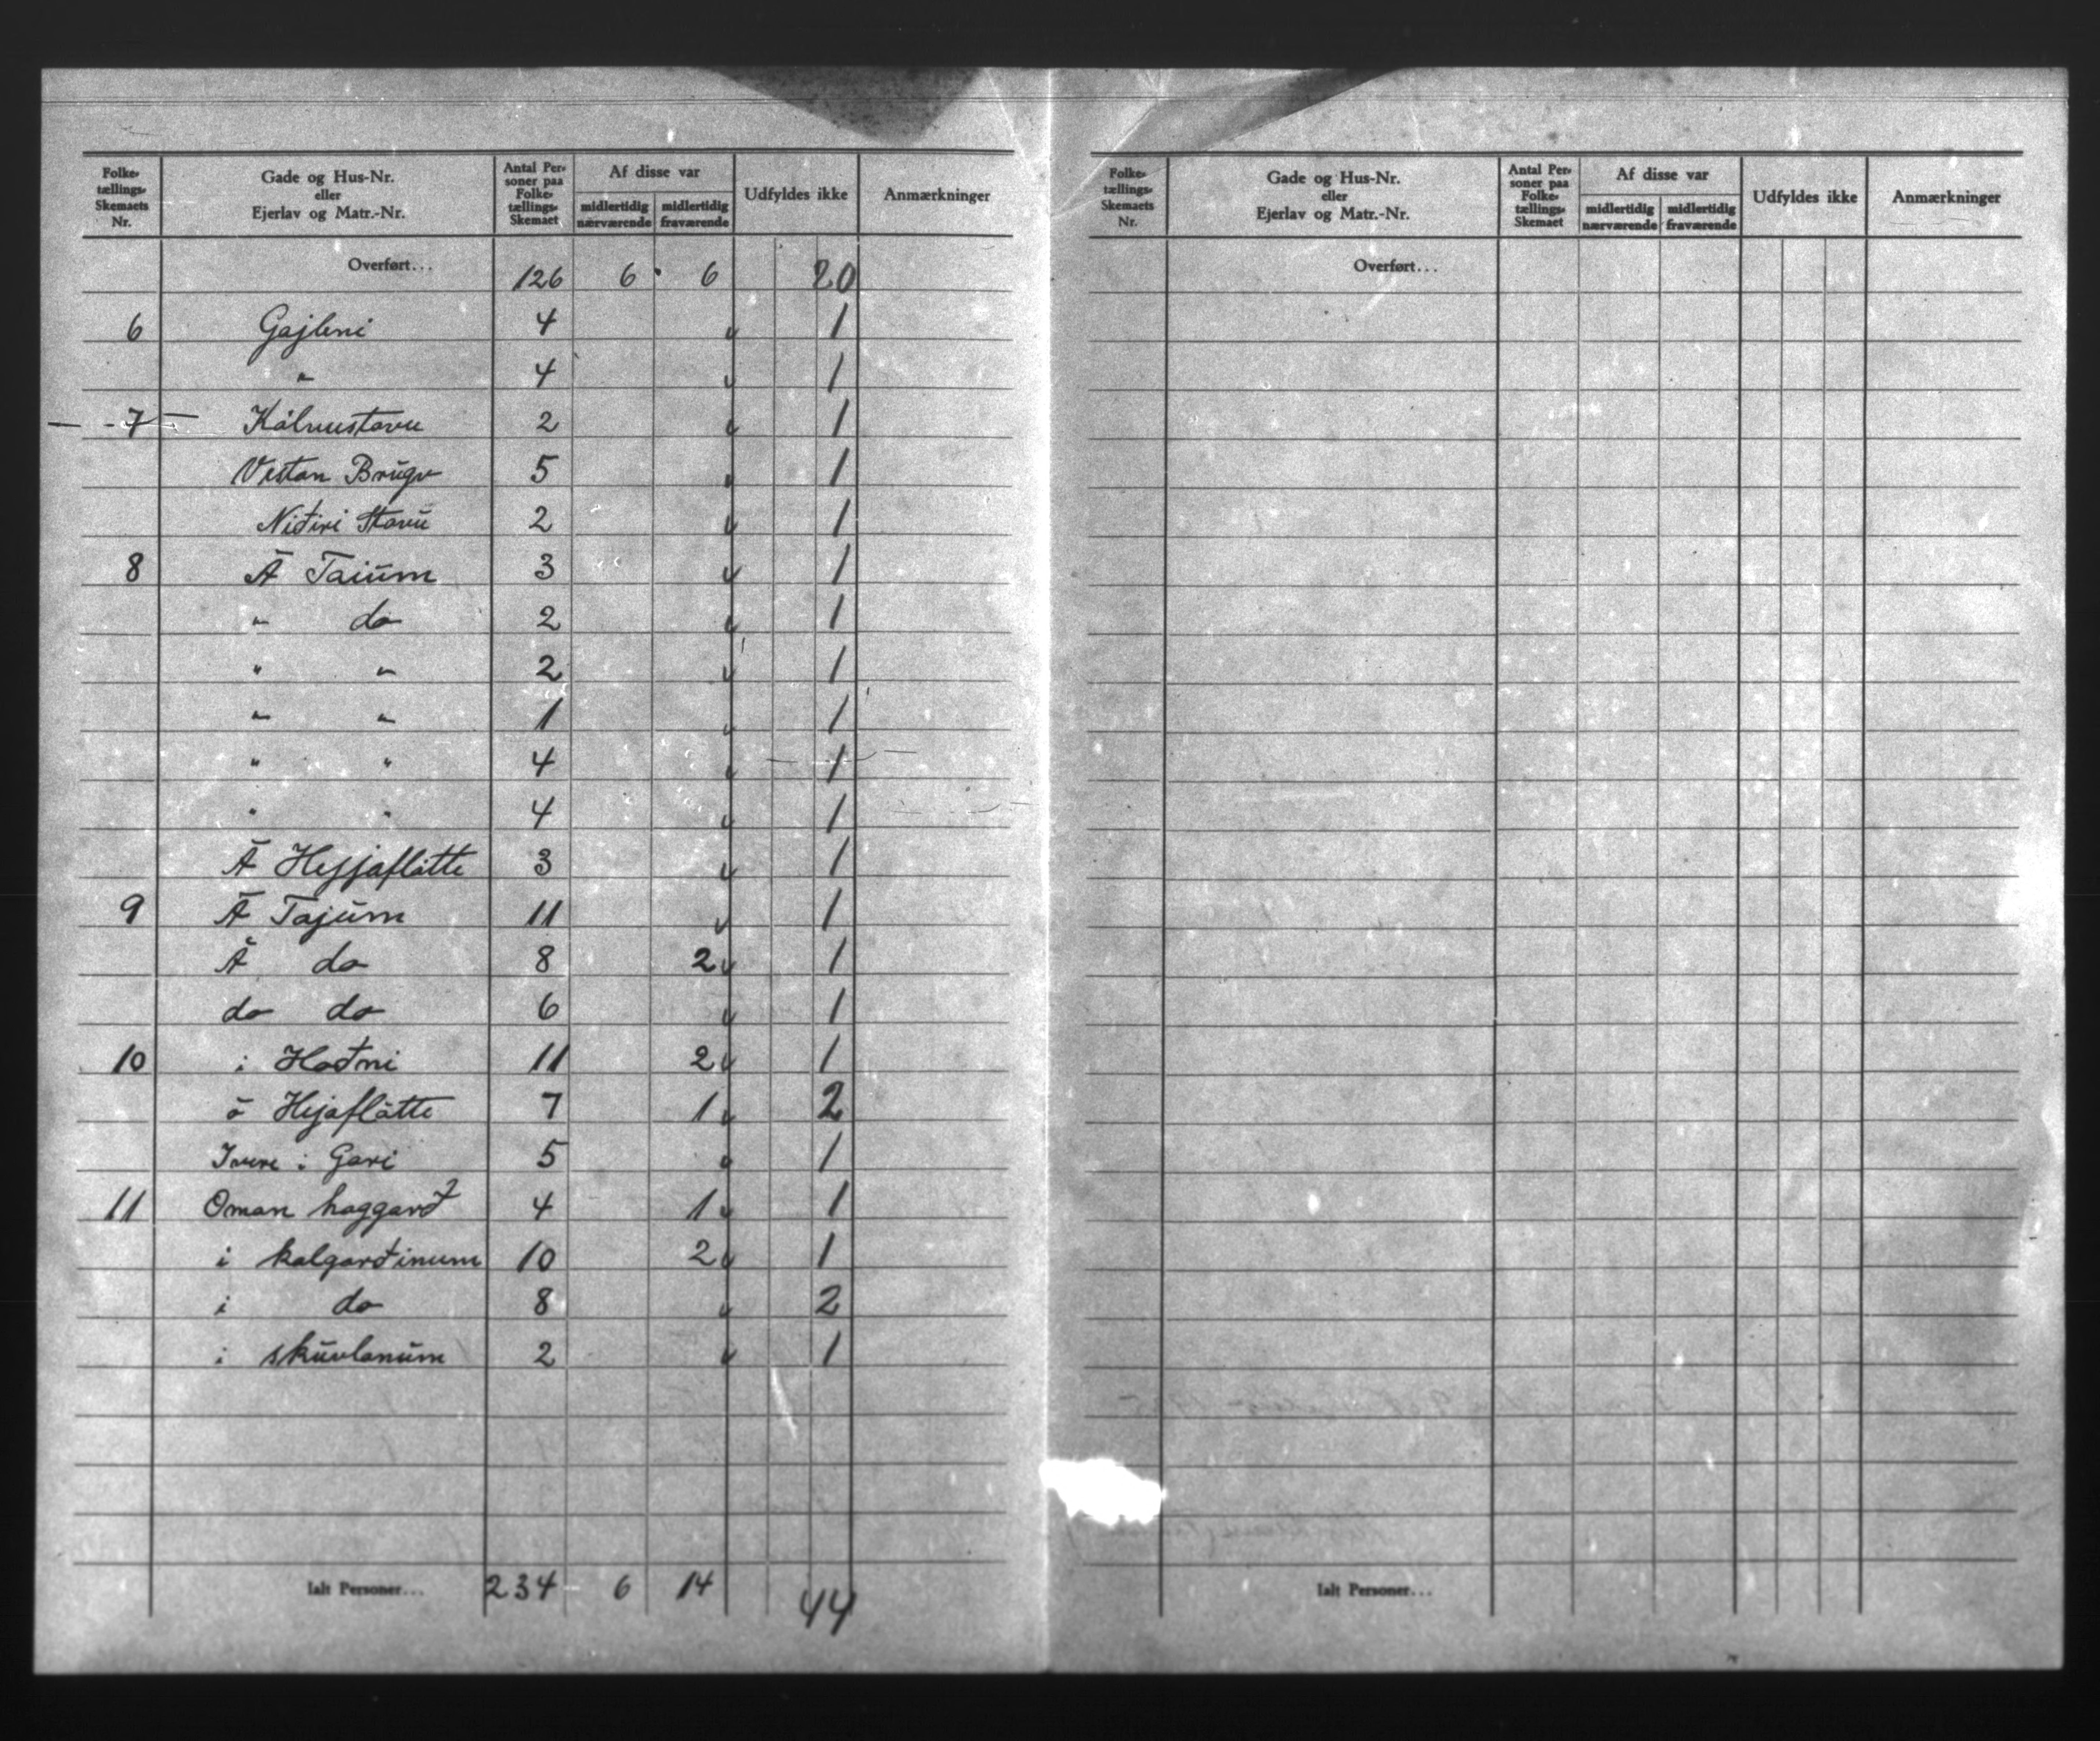 Folke-
tællings-
Skemaets
Nr.
Gade og Hus-Nr.
eller
Ejerlav og Matr.-Nr.
Antal Per-
soner paa
Folke-
tællings-
Skemaet
Af disse var
midlertidig
nærværende
midlertidig
fraværende
Udfyldes ikke
Anmærkninger
Overført... 126 6 6 20
6 Gajleni 4 1
" 4 1
7 Kálvustovu 2 1
Vestan Brúgv 5 1
Niđiri Stovu 2 1
8 Á Taiúm 3 1
" do 2 1
" " 2 1
" " 1 1
" " 4 1
" " 4 1
Á Hejjaflátte 3 1
9 Á Tajúm 11 1
Á do 8 2 1
do do 6 1
10 i Hođni 11 2 1
á Hejaflátte 7 1 2
i Gari 5 1
11 Oman haggarđ 4 1 1
i kalgarđinum 10 2 1
i do 8 2
i skúvlanúm 2 1
Ialt Personer... 234 6 14 44
Folke-
tællings-
Skemaets
Nr.
Gade og Hus-Nr.
eller
Ejerlav og Matr.-Nr.
Antal Per-
soner paa
Folke-
tællings-
Skemaet
Af disse var
midlertidig
nærværende
midlertidig
fraværende
Udfyldes ikke
Anmærkninger
Overført...
Ialt Personer...